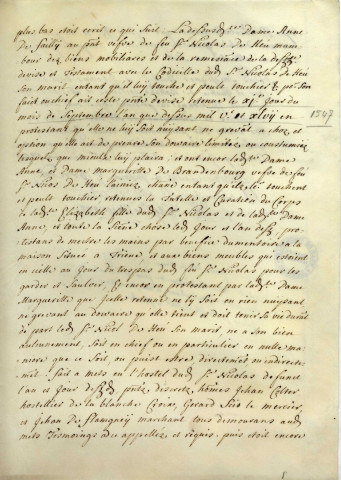 plus bas etoit ecrit ce qui suit. La dessusd. Dame Anne
de Failly au sont vefve de feu Sr Nicolas de Heu main
bour des biens mobiliaires et de la remenance de la
devise et Testament avec le Codicille dud. Sr Nicolas de Heu
Son marit entant qu'il luy touche et peult touchier
faict ait ceste pnte devise retenue le xje jour du
mois de Septembre l'an que dessus mil vc et xlvij en
1547
protestant qu'elle ne luy Soit nuysant ne grevant a choz et
option qu'elle ait de prenre Son dowaire limitez ou coustumiez
lequelz que mieulx luy plaira. et ont encor lad. Dame
Anne, et Dame marguerille de Brandenbourg vefve de feu
Sr Nicos de Heu l'ainez, chune entant qu'elz touchent
et peult touchier retenues la Tutelle et Curation du Corps
de lad. Elizabeth fille dud. Sr Nicolas et de lad. Dame
Anne, et toute la Sienne chose led. jour et l'an
testans de mectre les mains par benefice d'inventoire a la
maison Sieues a Trieue et aux biens meubles qui estoient
en icelle au jour du trespas dud. feu Sr Nicolas pour les
garder et Saulver, Et encor en protestant par lad. Dame
Marguerille que celle retenue ne ly Soit en rien nuysant
ne grevant au dowaire qu'elle tient et doit tenir Sa vie durant
de part led. Sr Nicol de Heu Son marit ne a Son bien
aulcunement, Soit en chief ou en particulier en nulle ma
niere que ce Soit, ou puist estre directement ou indirecte
ment. fait a mets en l'hostel dud. Sr Nicolas defunct
l'an et jour pntz discretz homes Jehan Colter
hostellier de la blanche Croix, Gerard le mercier,
et Jehan de Flavigney marchant tous demourans aud.
mets Tesmoings ad ce appellez et requis. puis etoit encore